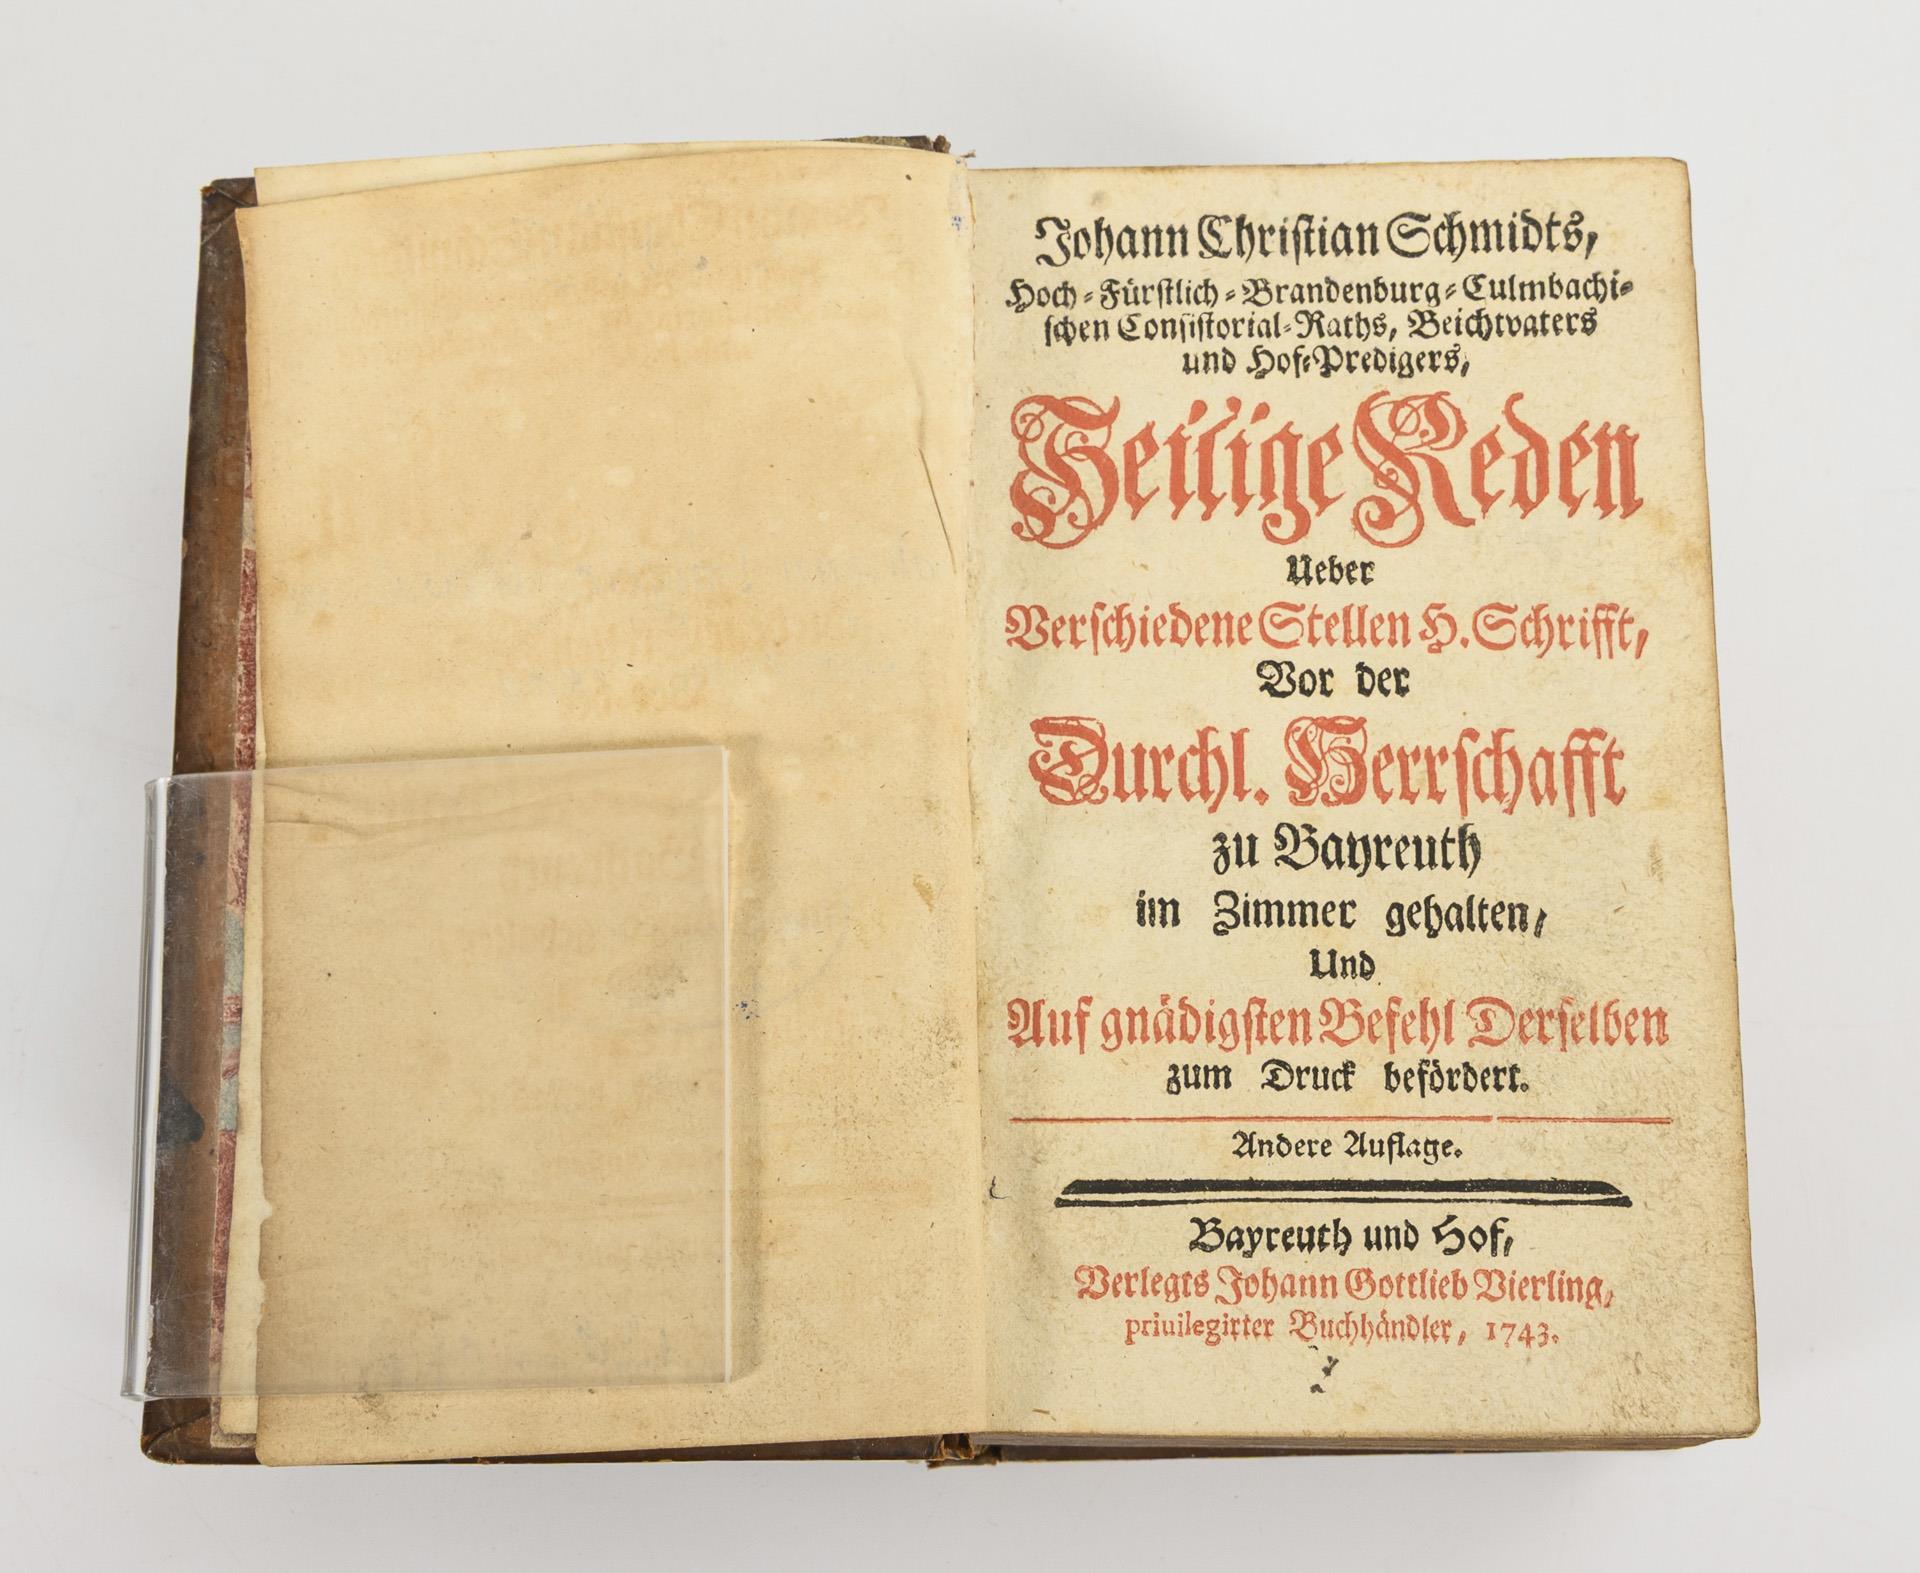 Johann Christian Schmidts,
Hoch-Fürstlich-Brandenburg-Culmbachi-
schen Consistorial-Raths, Beichtvaters
und Hof-Predigers,
Heilige Reden
Ueber
Verschiedene Stellen H. Schrifft,
Vor der
Durchl. Herrschafft
zu Bayreuth
im Zimmer gehalten,
Und
Auf gnädigsten Befehl Derselben
zum Druck befördert.
Andere Auflage.
Bayreuth und Hof,
Verlegts Johann Gottlieb Vierling,
priuilegirter Buchhändler, 1743.